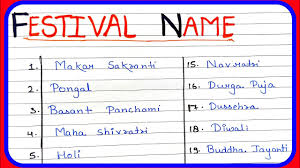 FESTIVAL NAME
1. Makar Sakranti
2. Pongal
3. Basant Panchami
4. Maha shivratri
5. Holi
15. Navratri
16. Durga Puja
17. Dussehra
18. Diwali
19. Buddha Jayanti